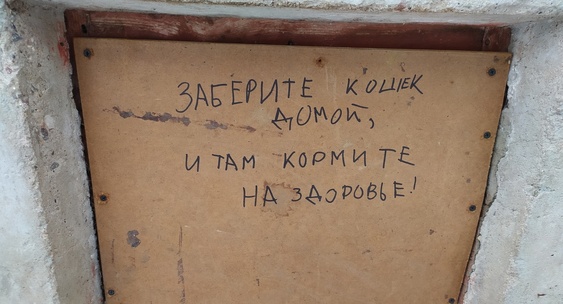 ЗАБЕРИТЕ КОШЕК
ДОМОЙ,
И ТАМ КОРМИТЕ
НА ЗДОРОВЬЕ!